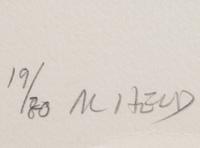 19/80 Al HELD